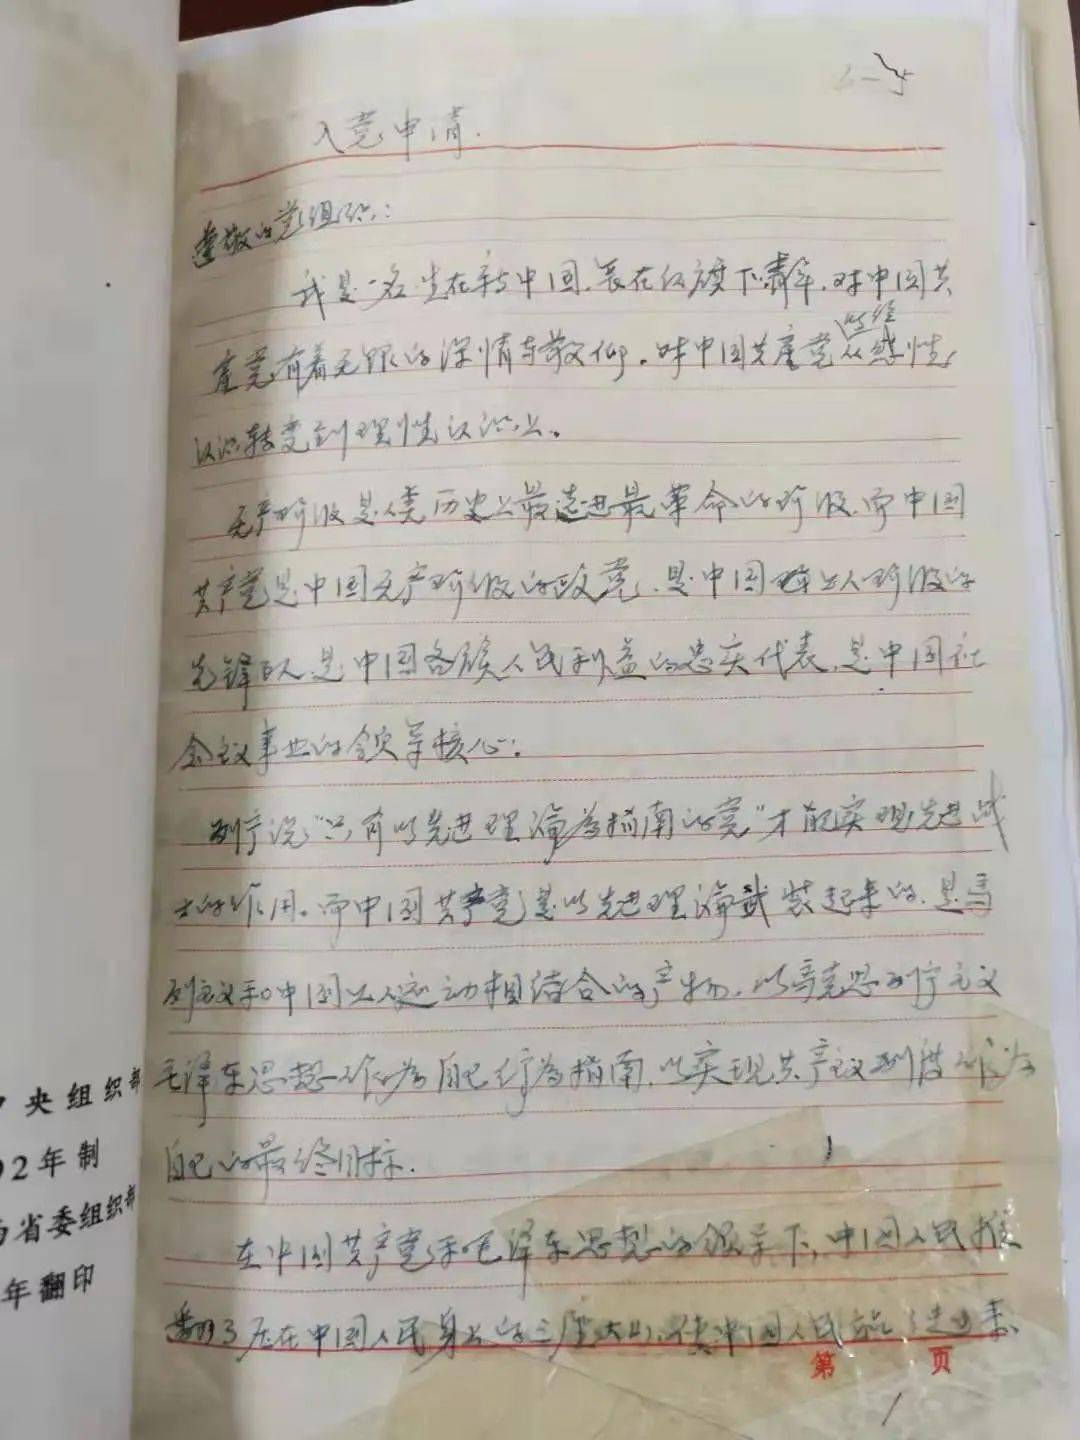 2-5
入党申请.
尊敬的党组织:
我是一名生在新中国,长在红旗下青年,对中国共
产党有着无限的深情与敬仰。对中国共产党已经从感性
认识转变到理性认识上。
无产阶级是人类历史上最先进最革命的阶级,而中国
共产党是中国无产阶级的政党,是中国工人阶级的
先锋队,是中国各族人民利益的忠实代表,是中国社
会主义事业的领导核心;
列宁说"只有以先进理论为指南的党"才能实现先进战
士的作用。而中国共产党是以先进理论武装起来的,是马
列主义和中国工人运动相结合的产物,以马克思列宁主义
毛泽东思想作为自己行为指南,以实现共产主义制度作为
自己的最终目标.
在中国共产党和毛泽东思想的领导下,中国人民推
翻了压在中国人民身上的三座大山,使中国人民站起来
第 页
1
央组织部
92年制
省委组织部
年翻印